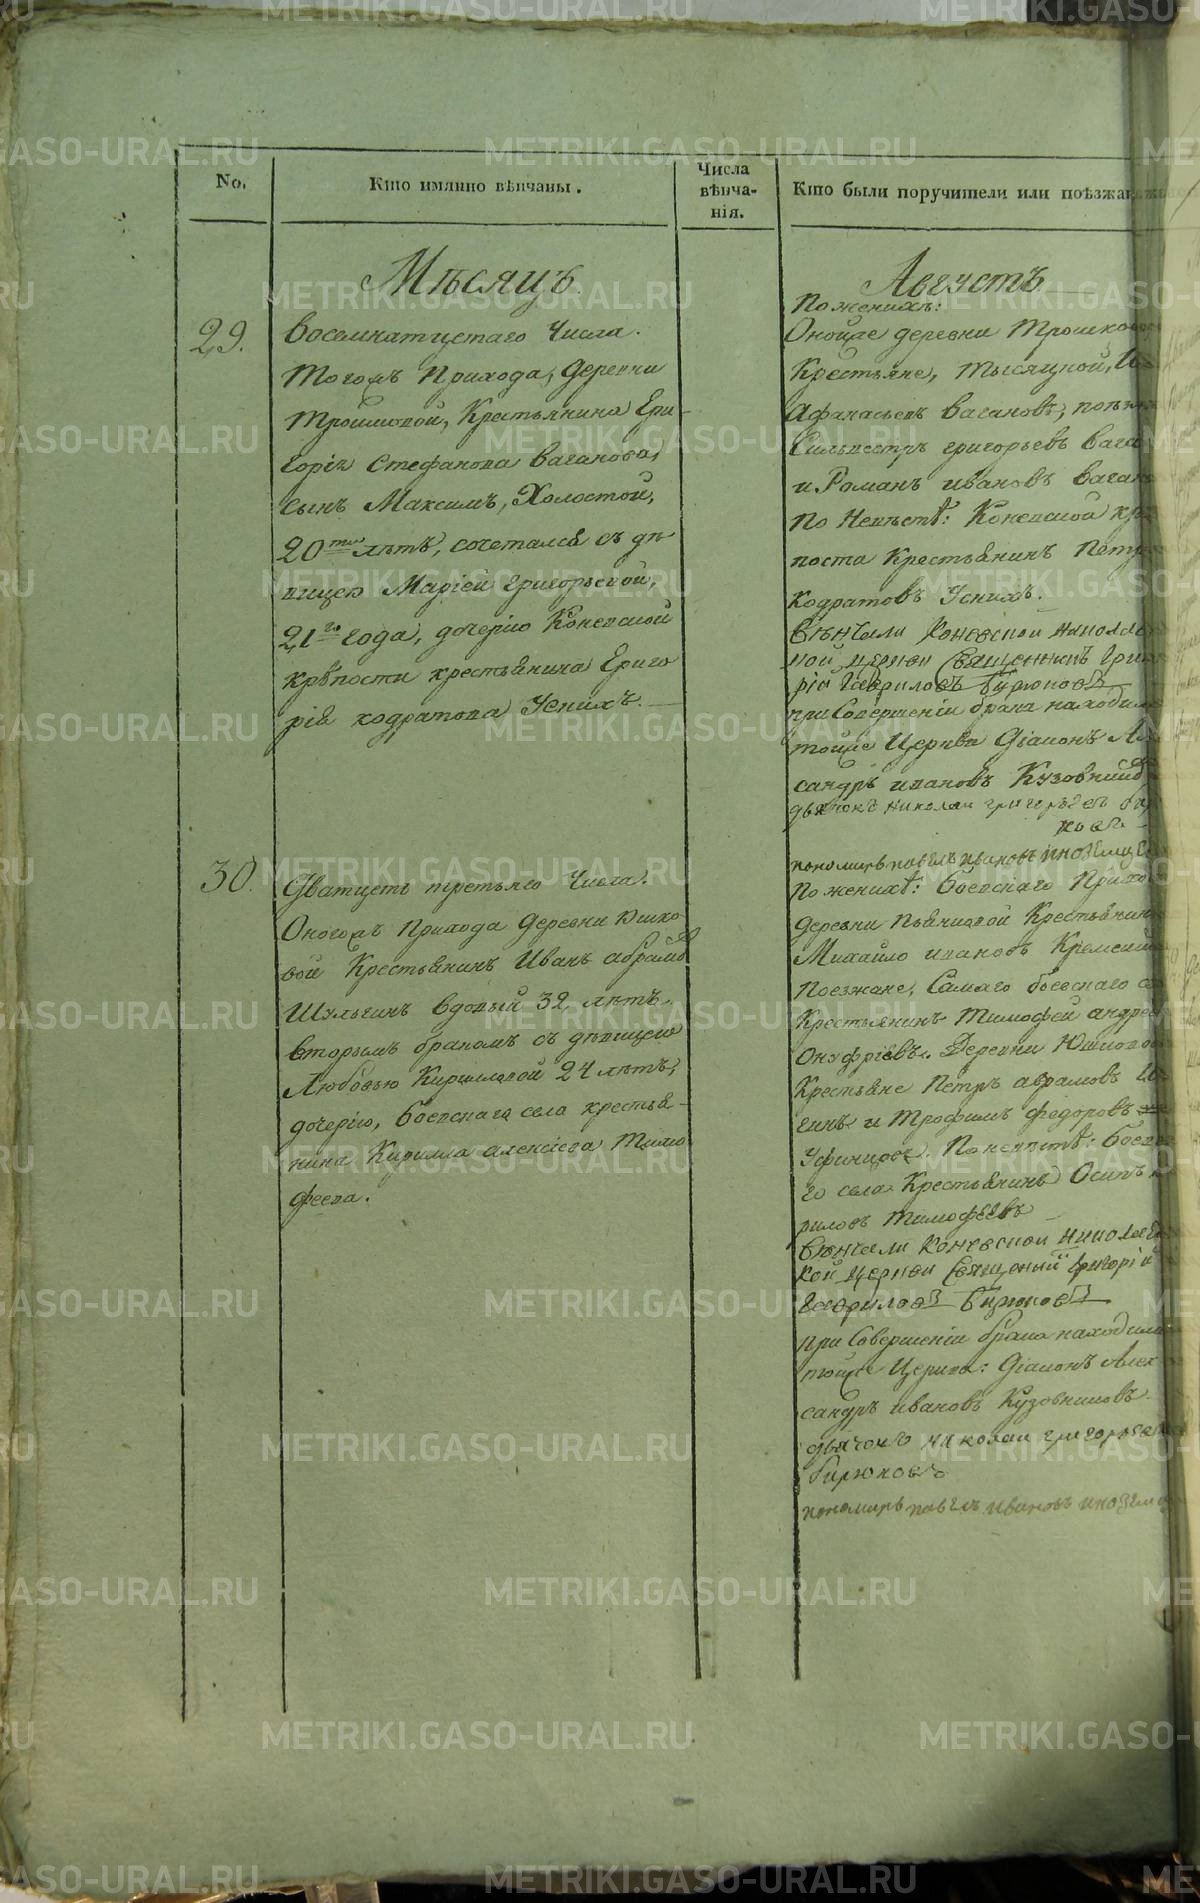 No.
Кто имянно вѣнчаны.
Числа
вѣнча-
нія.
Кто были поручители или поѣзжа
Мѣсяцъ
Августъ
29.
Восемнатцетаго Числа.
Тогожъ Прихода, Деревни
Трошковой, Крестьянина Гри-
горія Стефанова Ваганова,
сынъ Максимъ, Холостой,
20ти лѣтъ, сочетался съ дѣ
вицею Маріей григорьевой,
21го года, дочерію Коневской
крѣпости крестьянина Григо
рія кодратова Усених.
По женихѣ:
Оной же деревни Трошково
Крестьяне, тысяцкой,
Афанасьевъ Вагановъ,
Сильвестръ григорьевъ Вага
и Романъ ивановъ Ваган
По Невѣстѣ: Коневской крѣ
пости Крестьянинъ Петр
Кодратовъ Усених.
Вѣнчали Коневской Николае
кой церкви Священникъ Григо
рій Гавриловъ Бирюковъ
при Совершеніи брака находил
тойже Церкви Діаконъ Але
сандръ ивановъ Кузовниковъ
дьячокъ николаи григорьевъ би
ковъ
пономарь павелъ ивановъ иноземце
30.
Дватцеть третьяго Числа.
Оногожъ Прихода Деревни Юшко
вой Крестьянинъ Иванъ абрамовъ
Шульгинъ вдовый 32 лѣтъ,
вторымъ бракомъ съ дѣвицею
Любовью Кириловой 24 лѣтъ,
дочерію, Боевскаго села крестья-
нина Кирилла алексіева Тимо
феева.
По женихѣ: Боевскаго Прихо
деревни Пьянковой Крестьянин
Михайло ивановъ
Поезжане, Самаго боевского се
Крестьянинъ Тимофей андрее
Онуфріевъ. Деревни Юшково
Крестьяне Петръ аврамовъ Шу
гинъ и Трофимъ федоровъ
Уфинцовъ. По невѣстѣ: Боевс
го села Крестьянинъ Осипъ
риловъ Тимофѣевъ
Вѣнчали Коневской николае
кой церкви Священникъ Григорій
Гавриловъ Бирюковъ
при Совершеніи брака находили
тойже Церкви: Діаконъ Алек
сандръ ивановъ Кузовниковъ
дьячокъ николаи григорьев
бирюковъ
пономарь павелъ ивановъ инозем